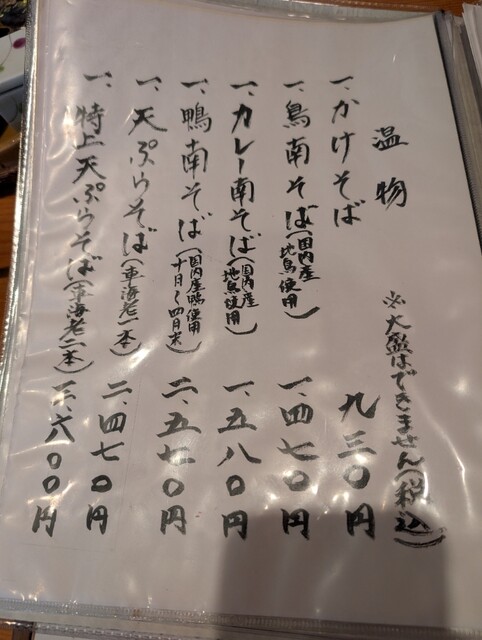 温物
※大盛はできません(税込)
一、かけそば 九三〇円
一、鳥南そば(国内産地鳥使用) 一、四七〇円
一、カレー南そば(国内産地鳥使用) 一、五八〇円
一、鴨南そば(国内産鴨使用十月〜四月末) 二、五七〇円
一、天ぷらそば(車海老一本) 二、四七〇円
一、特上天ぷらそば(車海老二本) 三、六〇〇円